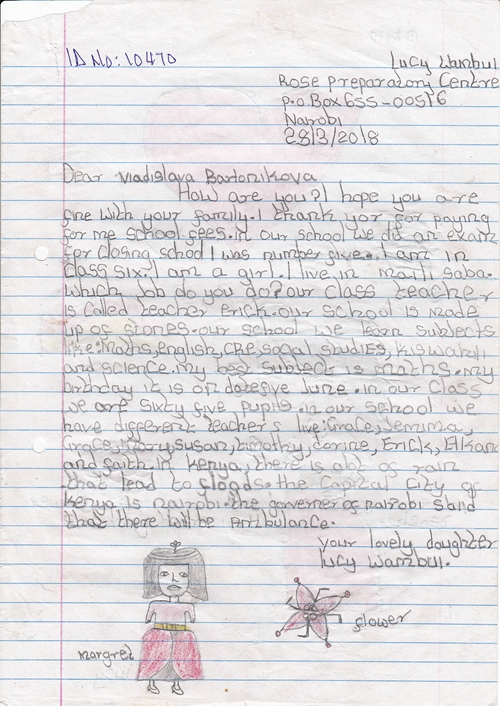 ID No: 10470
Lucy Wambui
Rose preparatory Centre
p.o.Box 655-00516
Nairobi
28/3/2018
Dear Vladislava Bartonikova
How are you? I hope you are
fine with your family. I thank yor for paying
for me school fees. in our school we did an exam
for closing school I was number five. I am in
class six. I am a girl. I live in maili saba.
which job do you do? our class teacher
is called teacher Erick. our school is made
up of stones. our school we learn subjects
like: Maths, english, CRE, social studies, kiswahili
and science. My best subject is maths. My
birthday it is of date five June. in our class
we are sixty five pupils. in our school we
have different teachers live: Grace, Jemima,
Grace, Mary, Susan, timothy, Corine, Erick, Elkana
and faith. in kenya, there is alot of rain
that lead to floods. the Capital City of
kenya is nairobi. the governer of nairobi said
that there will be Ambulance.
your lovely daughter
lucy wambui.
margret
flower